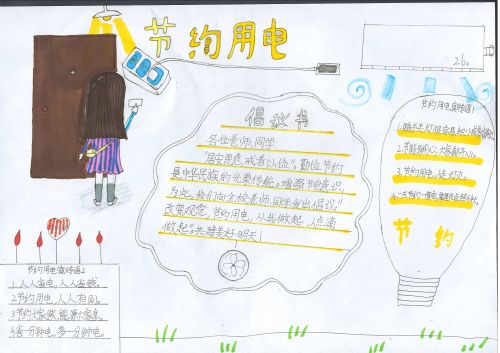 节约用电
26。
倡议书
各位老师、同学
"居安思危,戒奢以俭",勤俭节约
是中华民族的光荣传统。增强节电意识,
为此,我们向全校老师、同学发出倡议"
改变观念,节约用电,从我做起,从点滴
做起",共建美好明天!
节约用电宣传语1
2.节能
3.节约用电,
节约
节约用电宣传语2
1.人人省电,人人省钱。
2.节约用电,人人有责。
3.节约大家做,能源大家享。
4.省一分钟电,多一分钟电。